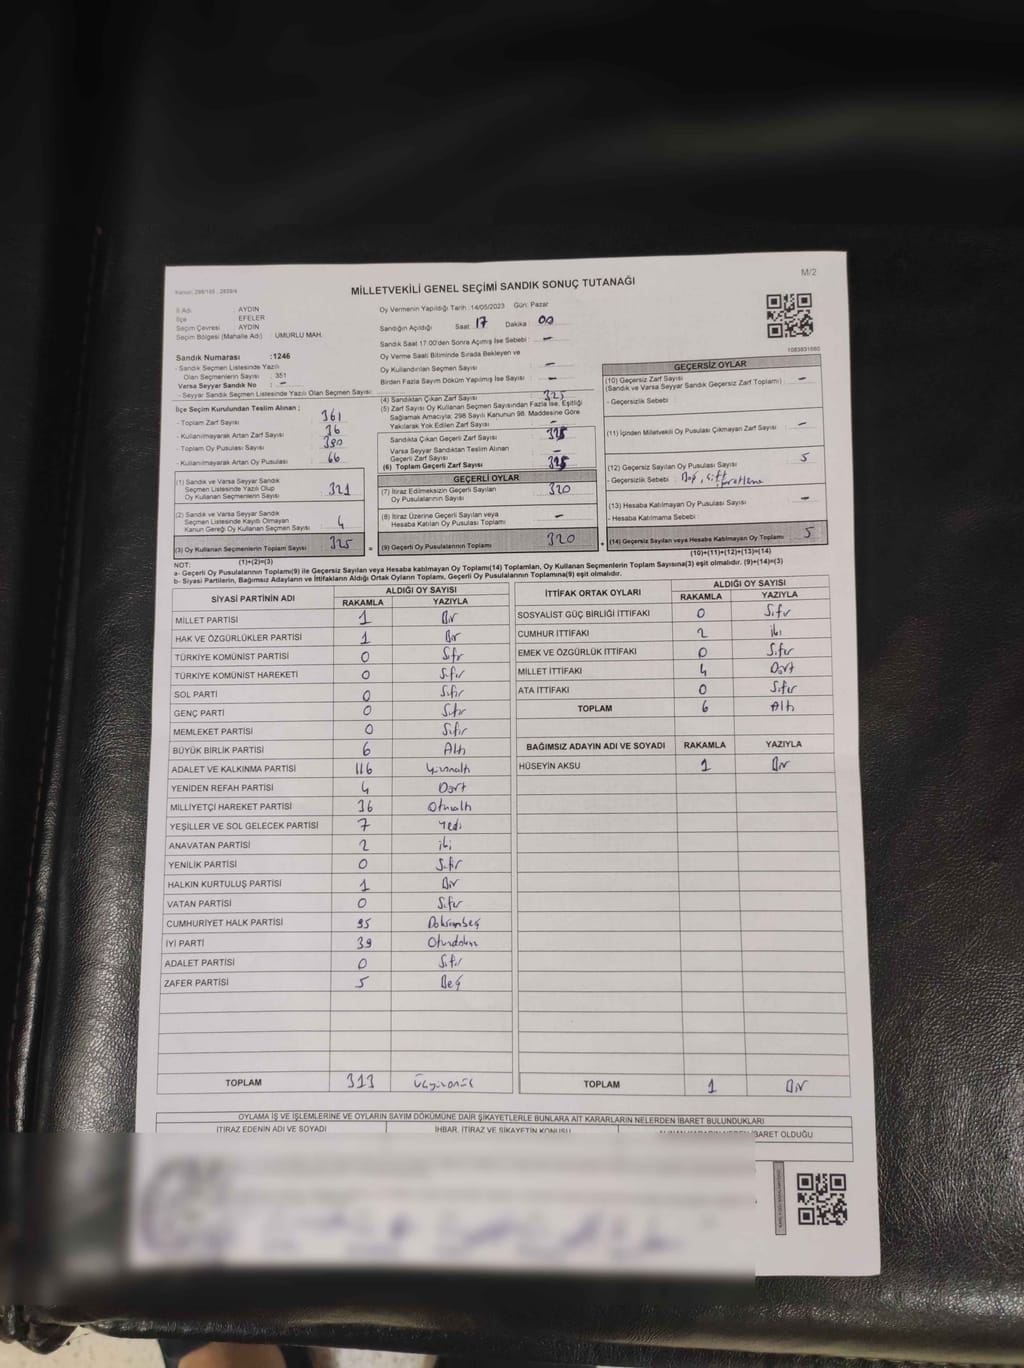 M/2
MİLLETVEKİLİ GENEL SEÇİMİ SANDIK SONUÇ TUTANAĞI
İl Adı : AYDIN
İlçe : EFELER
Seçim Çevresi : AYDIN
Seçim Bölgesi (Mahalle Adı) : UMURLU MAH.
Oy Vermenin Yapıldığı Tarih :14/05/2023 Gün: Pazar
Sandığın Açıldığı Saat: 17 Dakika : 00
Sandık Saat 17:00'den Sonra Açımış İse Sebebi : -
Oy Verme Saati Bitiminde Sırada Bekleyen ve
Oy Kullandırılan Seçmen Sayısı : -
Birden Fazla Sayım Döküm Yapılmış İse Sayısı : -
1083831660
Sandık Numarası :1246
- Sandık Seçmen Listesinde Yazılı
Olan Seçmenlerin Sayısı : 351
Varsa Seyyar Sandık No : -
- Seyyar Sandık Seçmen Listesinde Yazılı Olan Seçmen Sayısı:
İlçe Seçim Kurulundan Teslim Alınan ;
- Toplam Zarf Sayısı : 361
- Kullanılmayarak Artan Zarf Sayısı : 36
- Toplam Oy Pusulası Sayısı : 390
- Kullanılmayarak Artan Oy Pusulası : 66
(1) Sandık ve Varsa Seyyar Sandık
Seçmen Listesinde Yazılı Olup
Oy Kullanan Seçmenlerin Sayısı : 321
(2) Sandık ve Varsa Seyyar Sandık
Seçmen Listesinde Kayıtlı Olmayan
Kanun Gereği Oy Kullanan Seçmen Sayısı : 4
(3) Oy Kullanan Seçmenlerin Toplam Sayısı 325
(1)+(2)=(3)
(4) Sandıktan Çıkan Zarf Sayısı : 325
(5) Zarf Sayısı Oy Kullanan Seçmen Sayısından Fazla İse, Eşitliği
Sağlamak Amacıyla; 298 Sayılı Kanunun 98. Maddesine Göre
Yakılarak Yok Edilen Zarf Sayısı : -
Sandıkta Çıkan Geçerli Zarf Sayısı : 325
Varsa Seyyar Sandıktan Teslim Alınan
Geçerli Zarf Sayısı : -
(6) Toplam Geçerli Zarf Sayısı : 325
GEÇERLİ OYLAR
(7) İtiraz Edilmeksizin Geçerli Sayılan
Oy Pusulalarının Sayısı : 320
(8) İtiraz Üzerine Geçerli Sayılan veya
Hesaba Katılan Oy Pusulası Toplamı : -
= (9) Geçerli Oy Pusulalarının Toplamı 320
GEÇERSİZ OYLAR
(10) Geçersiz Zarf Sayısı : -
(Sandık ve Varsa Seyyar Sandık Geçersiz Zarf Toplamı)
- Geçersizlik Sebebi :
(11) İçinden Milletvekili Oy Pusulası Çıkmayan Zarf Sayısı : -
(12) Geçersiz Sayılan Oy Pusulası Sayısı : 5
- Geçersizlik Sebebi : Boş, çift
(13) Hesaba Katılmayan Oy Pusulası Sayısı : -
- Hesaba Katılmama Sebebi :
+ (14) Geçersiz Sayılan veya Hesaba Katılmayan Oy Toplamı 5
(10)+(11)+(12)+(13)=(14)
NOT:
a- Geçerli Oy Pusulalarının Toplamı(9) ile Geçersiz Sayılan veya Hesaba katılmayan Oy Toplamı(14) Toplamları, Oy Kullanan Seçmenlerin Toplam Sayısına(3) eşit olmalıdır. (9)+(14)=(3)
b- Siyasi Partilerin, Bağımsız Adayların ve İttifakların Aldığı Ortak Oyların Toplamı, Geçerli Oy Pusulalarının Toplamına(9) eşit olmalıdır.
SİYASİ PARTİNİN ADI ALDIĞI OY SAYISI
RAKAMLA YAZIYLA
MİLLET PARTİSİ 1 Bir
HAK VE ÖZGÜRLÜKLER PARTİSİ 1 Bir
TÜRKİYE KOMÜNİST PARTİSİ 0 Sıfır
TÜRKİYE KOMÜNİST HAREKETİ 0 Sıfır
SOL PARTİ 0 Sıfır
GENÇ PARTİ 0 Sıfır
MEMLEKET PARTİSİ 0 Sıfır
BÜYÜK BİRLİK PARTİSİ 6 Altı
ADALET VE KALKINMA PARTİSİ 116 Yüzonaltı
YENİDEN REFAH PARTİSİ 4 Dört
MİLLİYETÇİ HAREKET PARTİSİ 36 Otuzaltı
YEŞİLLER VE SOL GELECEK PARTİSİ 7 Yedi
ANAVATAN PARTİSİ 2 iki
YENİLİK PARTİSİ 0 Sıfır
HALKIN KURTULUŞ PARTİSİ 1 Bir
VATAN PARTİSİ 0 Sıfır
CUMHURİYET HALK PARTİSİ 95 Doksanbeş
İYİ PARTİ 39 Otuzdokuz
ADALET PARTİSİ 0 Sıfır
ZAFER PARTİSİ 5 Beş
TOPLAM 313 Üçyüzonüç
İTTİFAK ORTAK OYLARI ALDIĞI OY SAYISI
RAKAMLA YAZIYLA
SOSYALİST GÜÇ BİRLİĞİ İTTİFAKI 0 Sıfır
CUMHUR İTTİFAKI 2 iki
EMEK VE ÖZGÜRLÜK İTTİFAKI 0 Sıfır
MİLLET İTTİFAKI 4 Dört
ATA İTTİFAKI 0 Sıfır
TOPLAM 6 Altı
BAĞIMSIZ ADAYIN ADI VE SOYADI RAKAMLA YAZIYLA
HÜSEYİN AKSU 1 Bir
TOPLAM 1 Bir
OYLAMA İŞ VE İŞLEMLERİNE VE OYLARIN SAYIM DÖKÜMÜNE DAİR ŞİKAYETLERLE BUNLARA AİT KARARLARIN NELERDEN İBARET BULUNDUKLARI
İTİRAZ EDENİN ADI VE SOYADI İHBAR, İTİRAZ VE ŞİKAYETİN KONUSU İBARET OLDUĞU